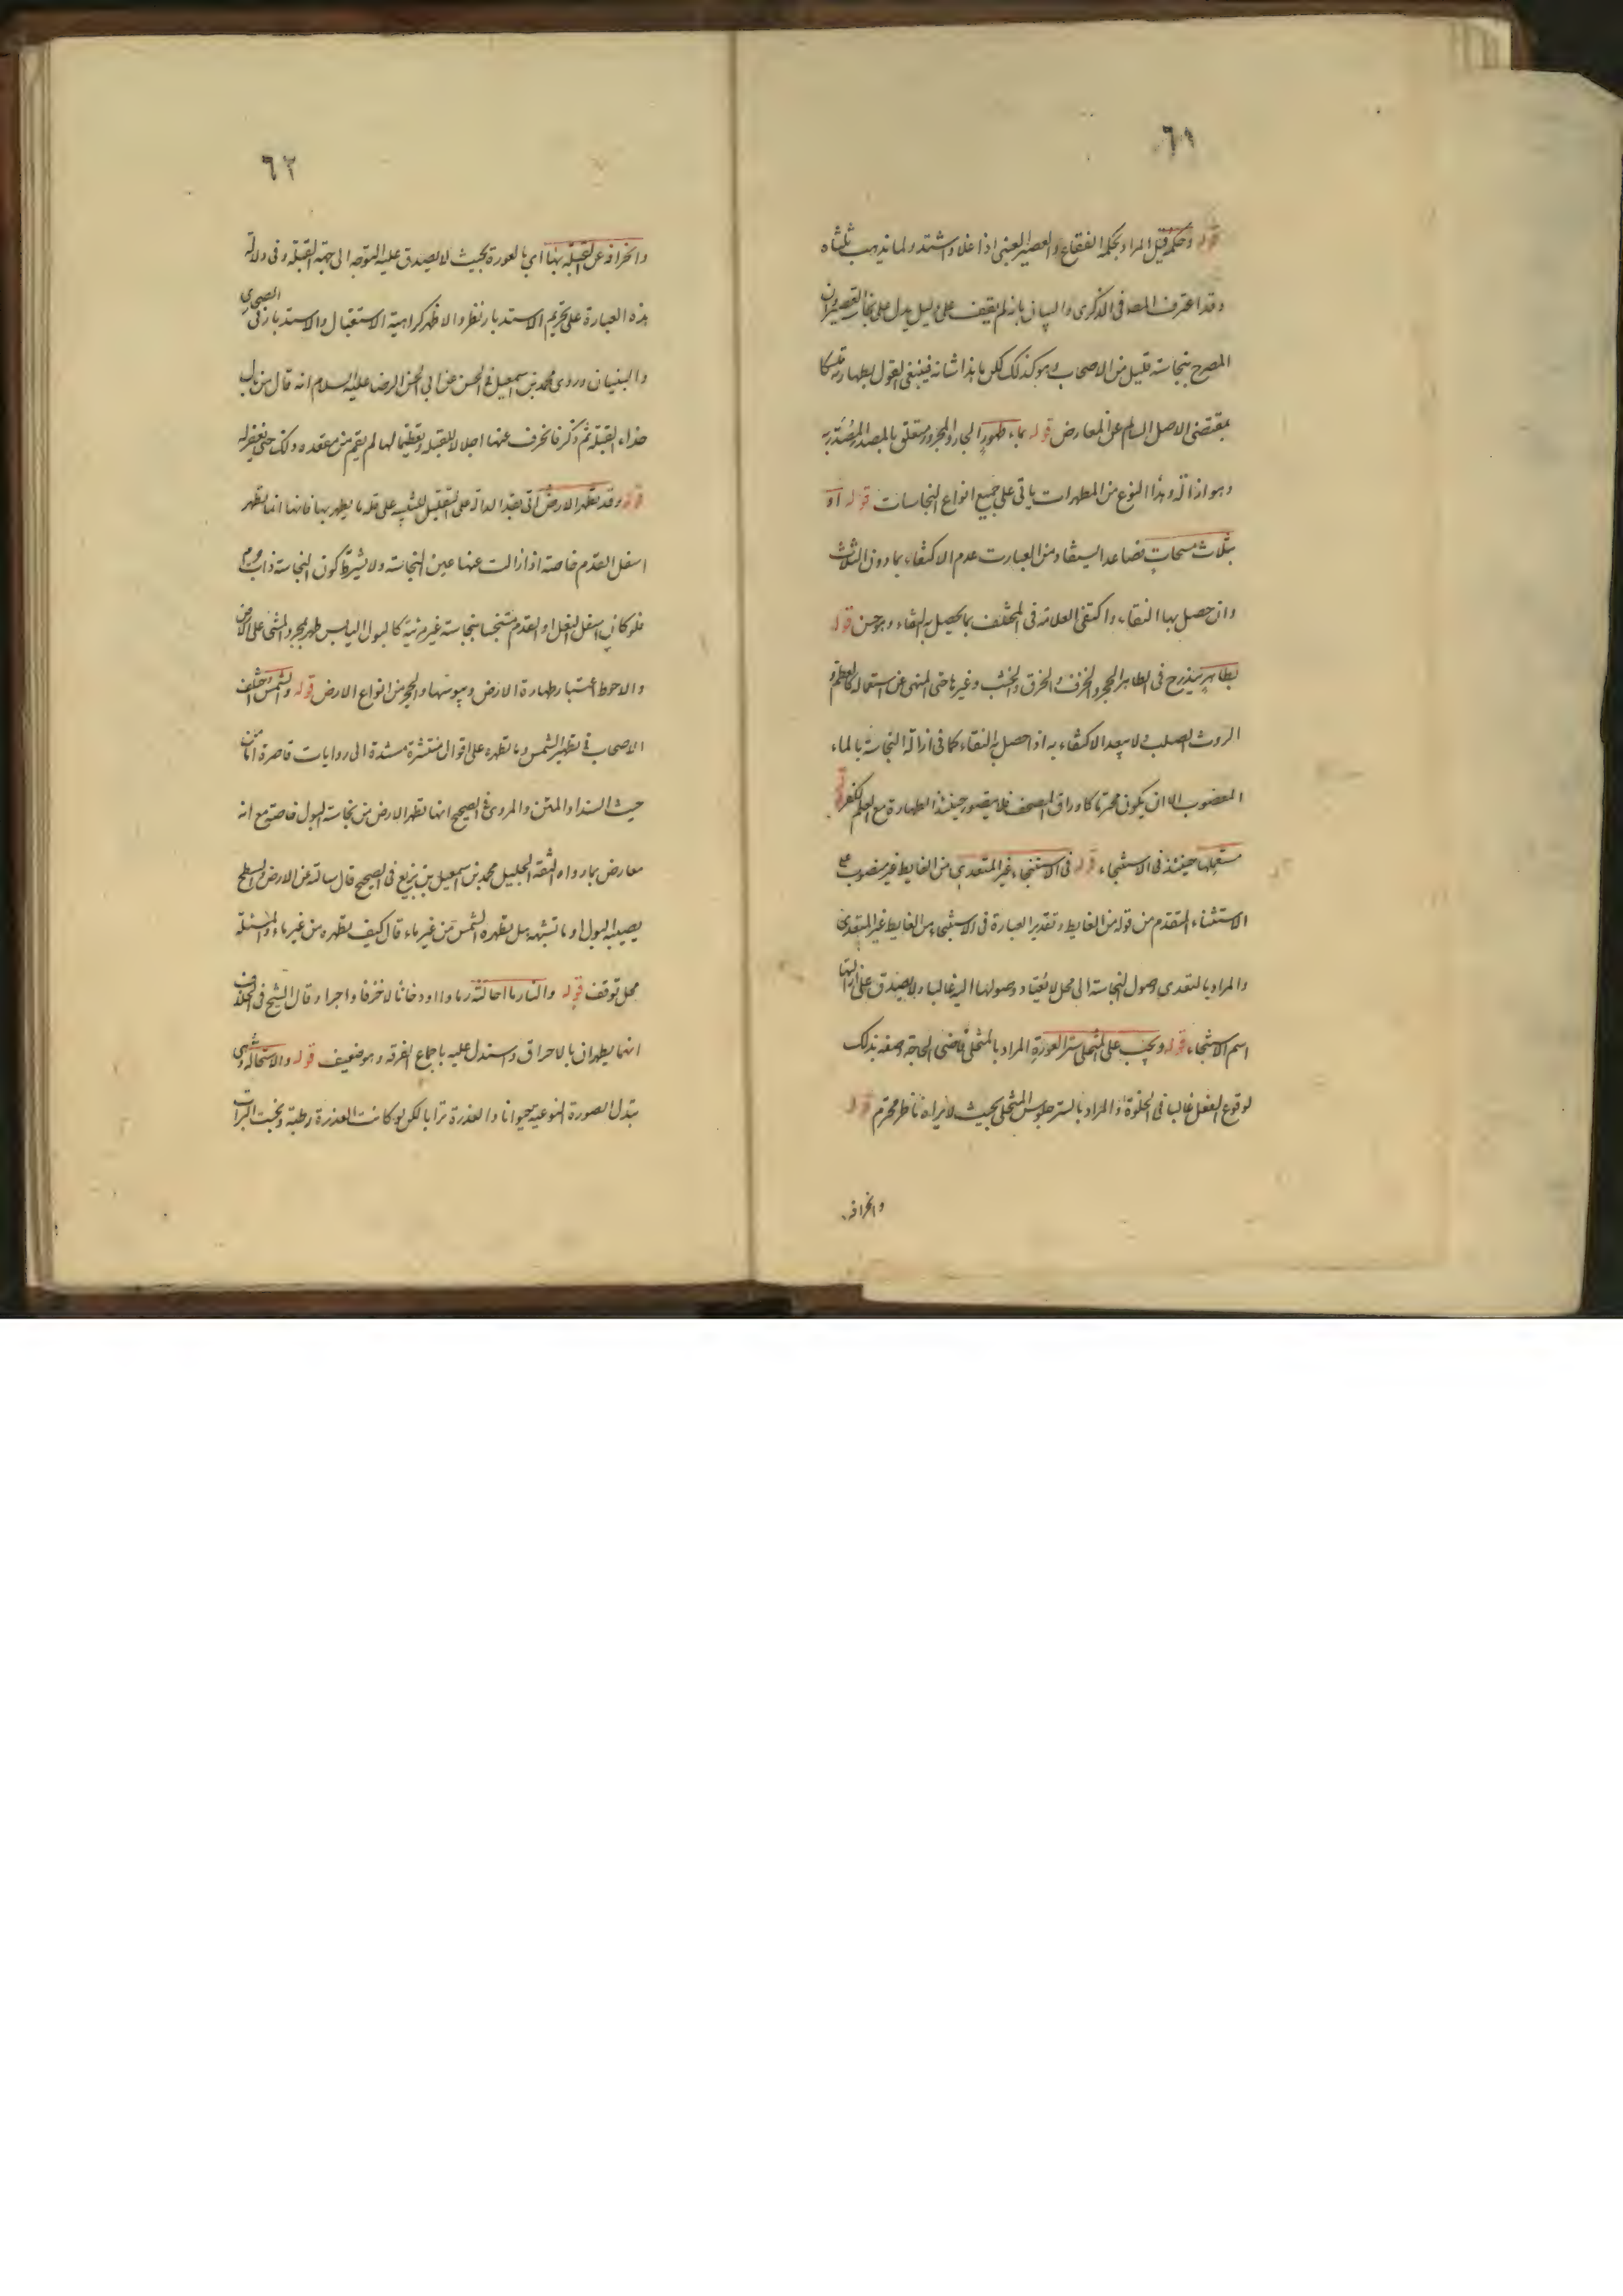 ٦١
قوله وحكمه قيل المراد بحكمه الفقاع والعصير العنبى اذا غلا واشتد ولما يذهب ثلثاه
وقد اعترف المصه فى الذكرى والبيان بانه لم يقف على دليل يدل على نجاسة العصير وان
المصرح بنجاسته قليل من الاصحاب وهو كذلك لكن ما هذا شانه فينبغى القول بطهارته تمسكا
بمقتضى الاصل السالم عن المعارض قوله بماء طهور الجار والمجرور متعلق بالمصدر المصدر به
وهو ازالة وهذا النوع من المطهرات ياتى على جميع انواع النجاسات قوله او
بثلاث مسحات فصاعدا يستفاد من العبارت عدم الاكتفاء بما دون الثلاث
وان حصل بها النقاء واكتفى العلامة فى المختلف بما يحصل به النقاء وهو حسن قوله
بطاهر يندرج فى الطاهر الحجر والخزف والخرق والخشب وغيرها حتى المنهى عن استعماله كالعظم و
الروث الصلب ولا يبعد الاكتفاء به اذا حصل به النقاء كما فى ازالة النجاسة بالماء
المغصوب الا ان يكون محترما كاوراق المصحف فلا يتصور حينئذ الطهارة مع العلم لكفر
مستعملها حينئذ فى الاستنجاء قوله فى الاستنجاء غير المتعدى من الغايط غير منصوب على
الاستثناء المتقدم من قوله من الغايط وتقدير العبارة فى الاستنجاء من الغايط غير المتعدى
والمراد بالتعدى وصول النجاسة الى محل لا يعتاد وصولها اليه غالبا ولا يصدق على ازالتها
اسم الاستنجاء قوله ويجب على المتخلى ستر العورة المراد بالمتخلى قاضى الحاجة وصفه بذلك
لوقوع الفعل غالبا فى الخلوة والمراد بالستر جلوس المتخلى بحيث لا يراه ناظر محترم قوله
وانحرافه
٦٢
وانحرافه عن القبلة بها اى بالعورة بحيث لا يصدق عليه التوجه الى جهة القبلة وفى دلالة
هذه العبارة على تحريم الاستدبار نظر والاظهر كراهية الاستقبال والاستدبار فى الصحارى
والبنيان وروى محمد بن اسمعيل فى الحسن عن ابى الحسن الرضا عليه السلام انه قال من بال
حذاء القبلة ثم ذكر فانحرف عنها اجلالا للقبلة وتعظيما لها لم يقم من مقعده ذلك حتى يغفر له
قوله وقد تطهر الارض اتى بقد الدالة على التقليل للتنبيه على قلة ما يطهر بها فانها انما تطهر
اسفل القدم خاصة اذا زالت عنها عين النجاسة ولا يشترط كون النجاسة ذات جرم
فلو كان اسفل النعل او القدم متنجسا بنجاسة غير مرئية كالبول اليابس طهر بمجرد المشى على الارض
والاحوط اعتبار طهارة الارض ويبوستها والحجر من انواع الارض قوله والشمس اختلف
الاصحاب فى تطهير الشمس وما تطهره على اقوال منتشرة مستندة الى روايات قاصرة اما من
حيث السند او المتن والمروى فى الصحيح انها تطهر الارض من نجاسة البول خاصة مع انه
معارض بما رواه الثقة الجليل محمد بن اسمعيل بن بزيع فى الصحيح قال سالته عن الارض والسطح
يصيبه البول او ما اشبهه هل يطهره الشمس من غير ماء قال كيف يطهره من غير ماء والمسئلة
محل توقف قوله والنار ما احالته رمادا او دخانا لا خزفا واجرا وقال الشيخ فى الخلاف
انهما يطهران بالاحراق واستدل عليه باجماع الفرقه وهو ضعيف قوله والاستحالة وهى
تبدل الصورة النوعية حيوانا والعذرة ترابا لكن لو كانت العذرة رطبة ونجست التراب